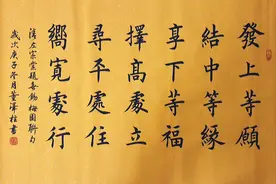 發上等願
結中等緣
享下等福
擇高處立
尋平處住
嚮寬處行
清左宗棠題無錫梅園聯句
歲次庚子冬月澤柱書